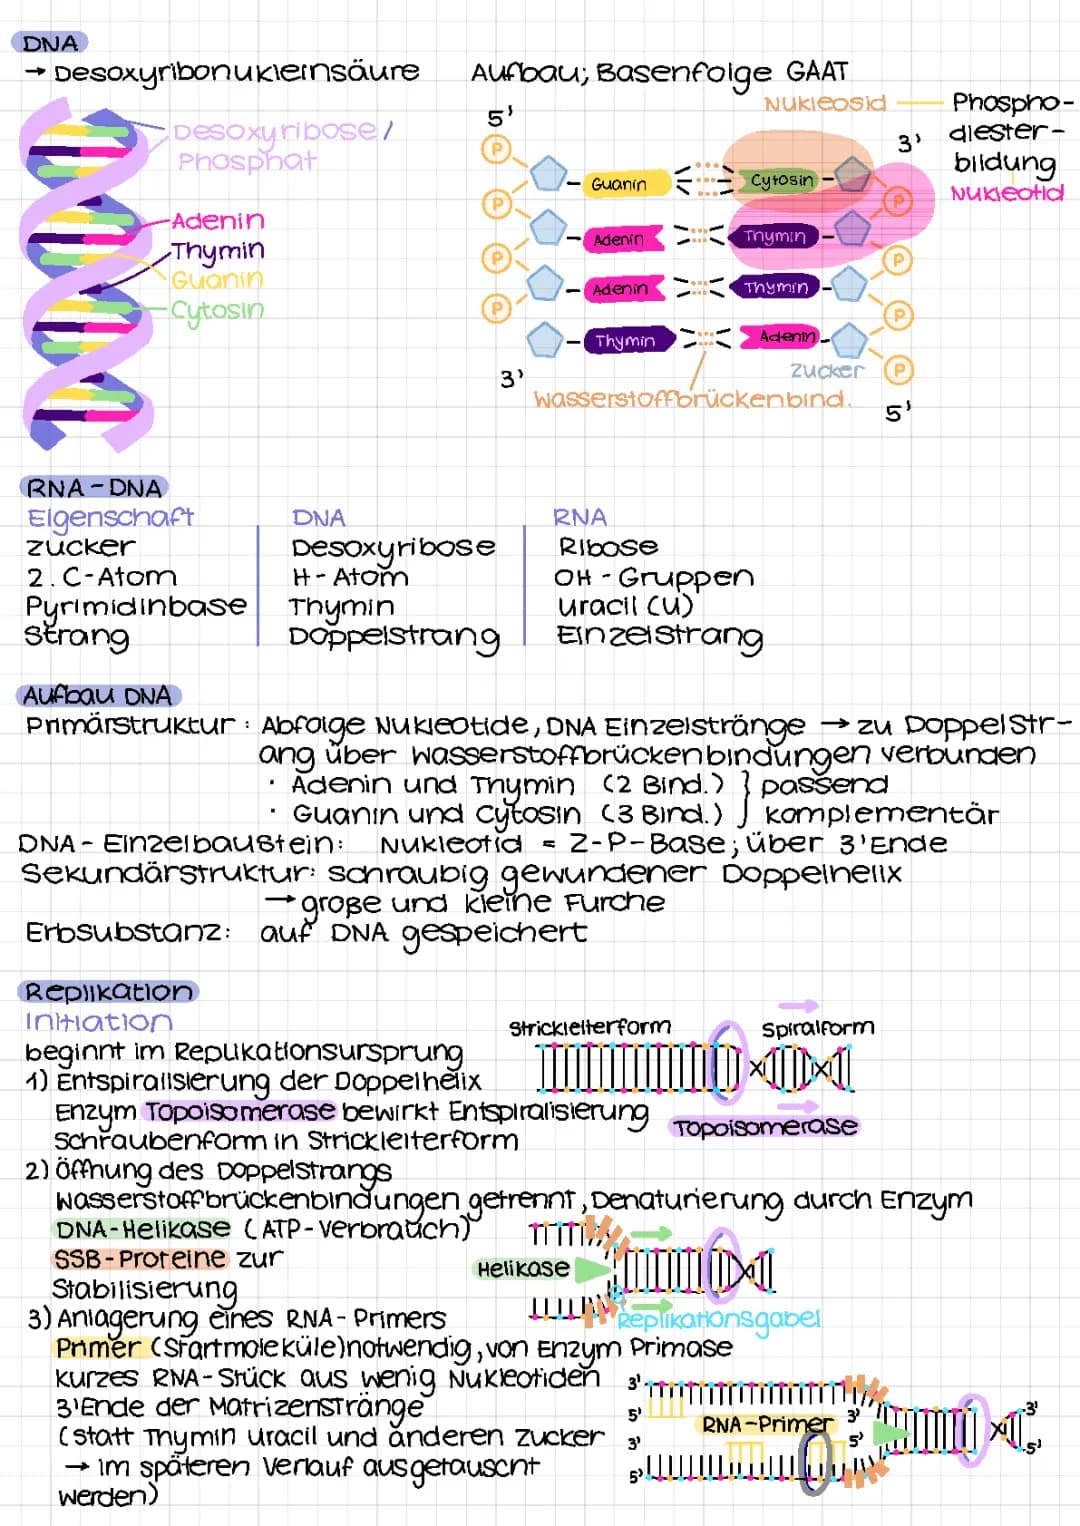 DNA
→ Desoxyribonukleinsäure
Desoxyribose/
Phosphat
Adenin
Thymin
Guanin
Cytosin
Aufbau; Basenfolge GAAT
Nukleosid
Phospho-
diester-
bildung
Nukleotid
5'
3'
P
Guanin
Cytosin
P
P
Adenin
Thymin
P
P
Adenin
Thymin
P
P
Thymin
Adenin
Zucker
P
3'
Wasserstoffbrückenbind.
5'
RNA - DNA
Eigenschaft DNA RNA
Zucker Desoxyribose Ribose
2. C-Atom H-Atom OH-Gruppen
Pyrimidinbase Thymin Uracil (U)
Strang Doppelstrang Einzelstrang
Aufbau DNA
Primärstruktur: Abfolge Nukleotide, DNA Einzelstränge → zu Doppelstr-
ang über Wasserstoffbrückenbindungen verbunden
· Adenin und Thymin (2 Bind.) } passend
· Guanin und Cytosin (3 Bind.) } komplementär
DNA-Einzelbaustein: Nukleotid = Z-P-Base; über 3'Ende
Sekundärstruktur: schraubig gewundener Doppelhelix
→ große und kleine Furche
Erbsubstanz: auf DNA gespeichert
Replikation
Initiation
beginnt im Replikationsursprung
1) Entspiralisierung der Doppelhelix
Enzym Topoisomerase bewirkt Entspiralisierung
Schraubenform in Strickleiterform
Strickleiterform
Spiralform
Topoisomerase
2) Öffnung des Doppelstrangs
Wasserstoffbrückenbindungen getrennt, Denaturierung durch Enzym
DNA-Helikase (ATP-Verbrauch)
SSB-Proteine zur
Stabilisierung
Helikase
Replikationsgabel
3) Anlagerung eines RNA-Primers
Primer (Startmoleküle) notwendig, von Enzym Primase
kurzes RNA-Stück aus wenig Nukleotiden
3'Ende der Matrizenstränge
(statt Thymin Uracil und anderen Zucker
→ im späteren Verlauf ausgetauscht
werden)
3'
5'
RNA-Primer
3'
3'
3'
5'
5'
5'